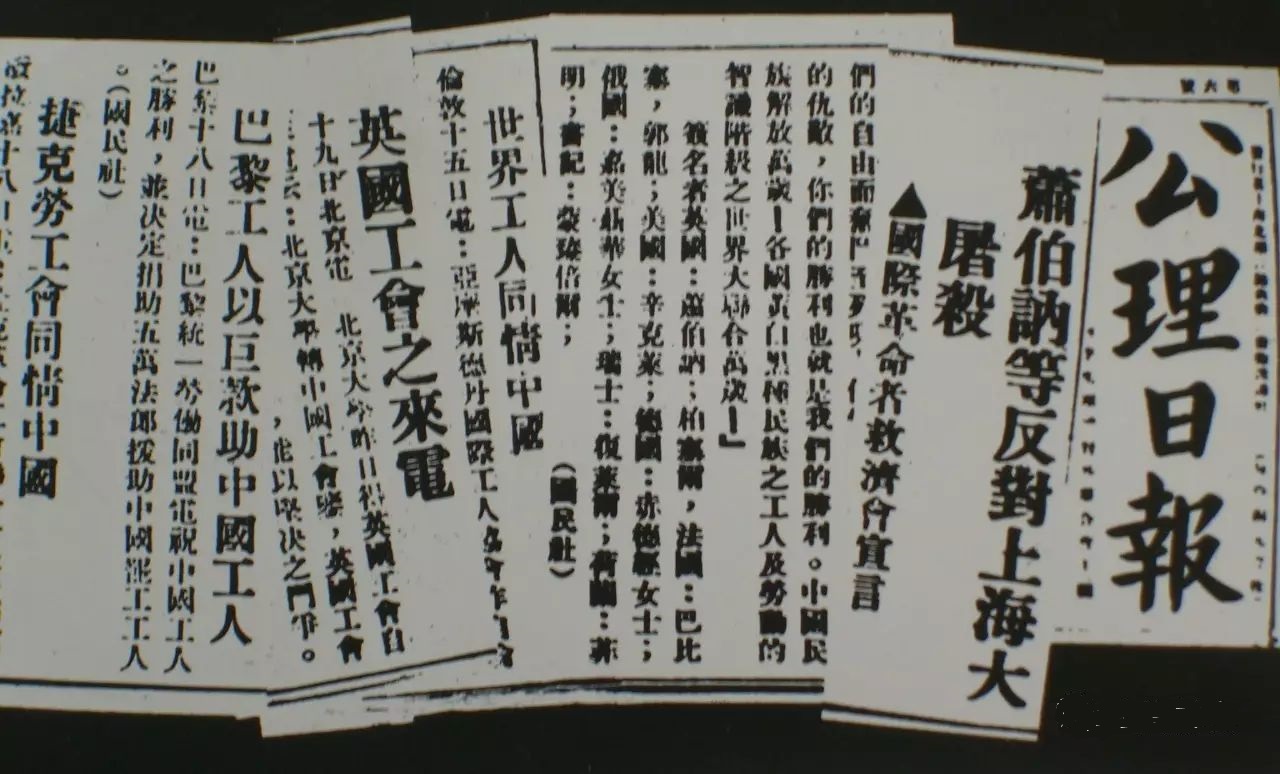 第六號
公理日報
蕭伯訥等反對上海大
屠殺
▲國際革命者救濟會宣言
們的自由而奮鬥
的仇敵，你們的勝利也就是我們的勝利。中國民
族解放萬歲！各國黃白黑種民族之工人及勞動的
智識階級之世界大聯合萬歲！』
簽名者英國：蕭伯訥；柏塞爾，法國：巴比
塞，郭龍；美國：辛克萊；德國：赤德經女士；
俄國：嘉美聶華女士；瑞士：復萊爾；荷蘭：菲
明；書記：蒙臻倍爾；
（國民社）
世界工人同情中國
倫敦十五日電：亞摩斯德丹國際工人協會
英國工會之來電
十九日北京電　北京大學昨日得英國工會自
云：北京大學轉中國工會鑒，英國工會
，能以堅決之鬥爭。
巴黎工人以巨款助中國工人
巴黎十八日電：巴黎統一勞働同盟電祝中國工人
之勝利，並決定捐助五萬法郎援助中國罷工工人
。（國民社）
捷克勞工會同情中國
拉嘉十八日電：